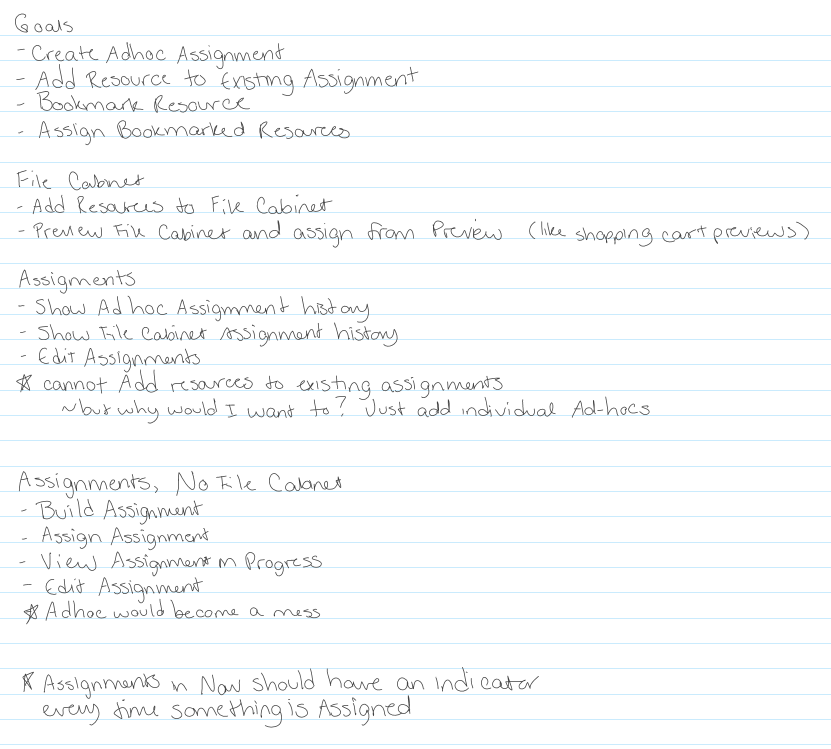 Goals
- Create Adhoc Assignment
- Add Resource to Existing Assignment
- Bookmark Resource
- Assign Bookmarked Resources
File Cabinet
- Add Resources to File Cabinet
- Preview File Cabinet and assign from Preview (like shopping cart previews)
Assigments
- Show Ad hoc Assignment history
- Show File Cabinet Assignment history
- Edit Assignments
☆ cannot Add resources to existing assignments
~but why would I want to? Just add individual Ad-hocs
Assignments, No File Cabinet
- Build Assignment
- Assign Assignment
- View Assignment in Progress
- Edit Assignment
☆ Adhoc would become a mess
☆ Assignments in Nav should have an indicator
every time something is Assigned